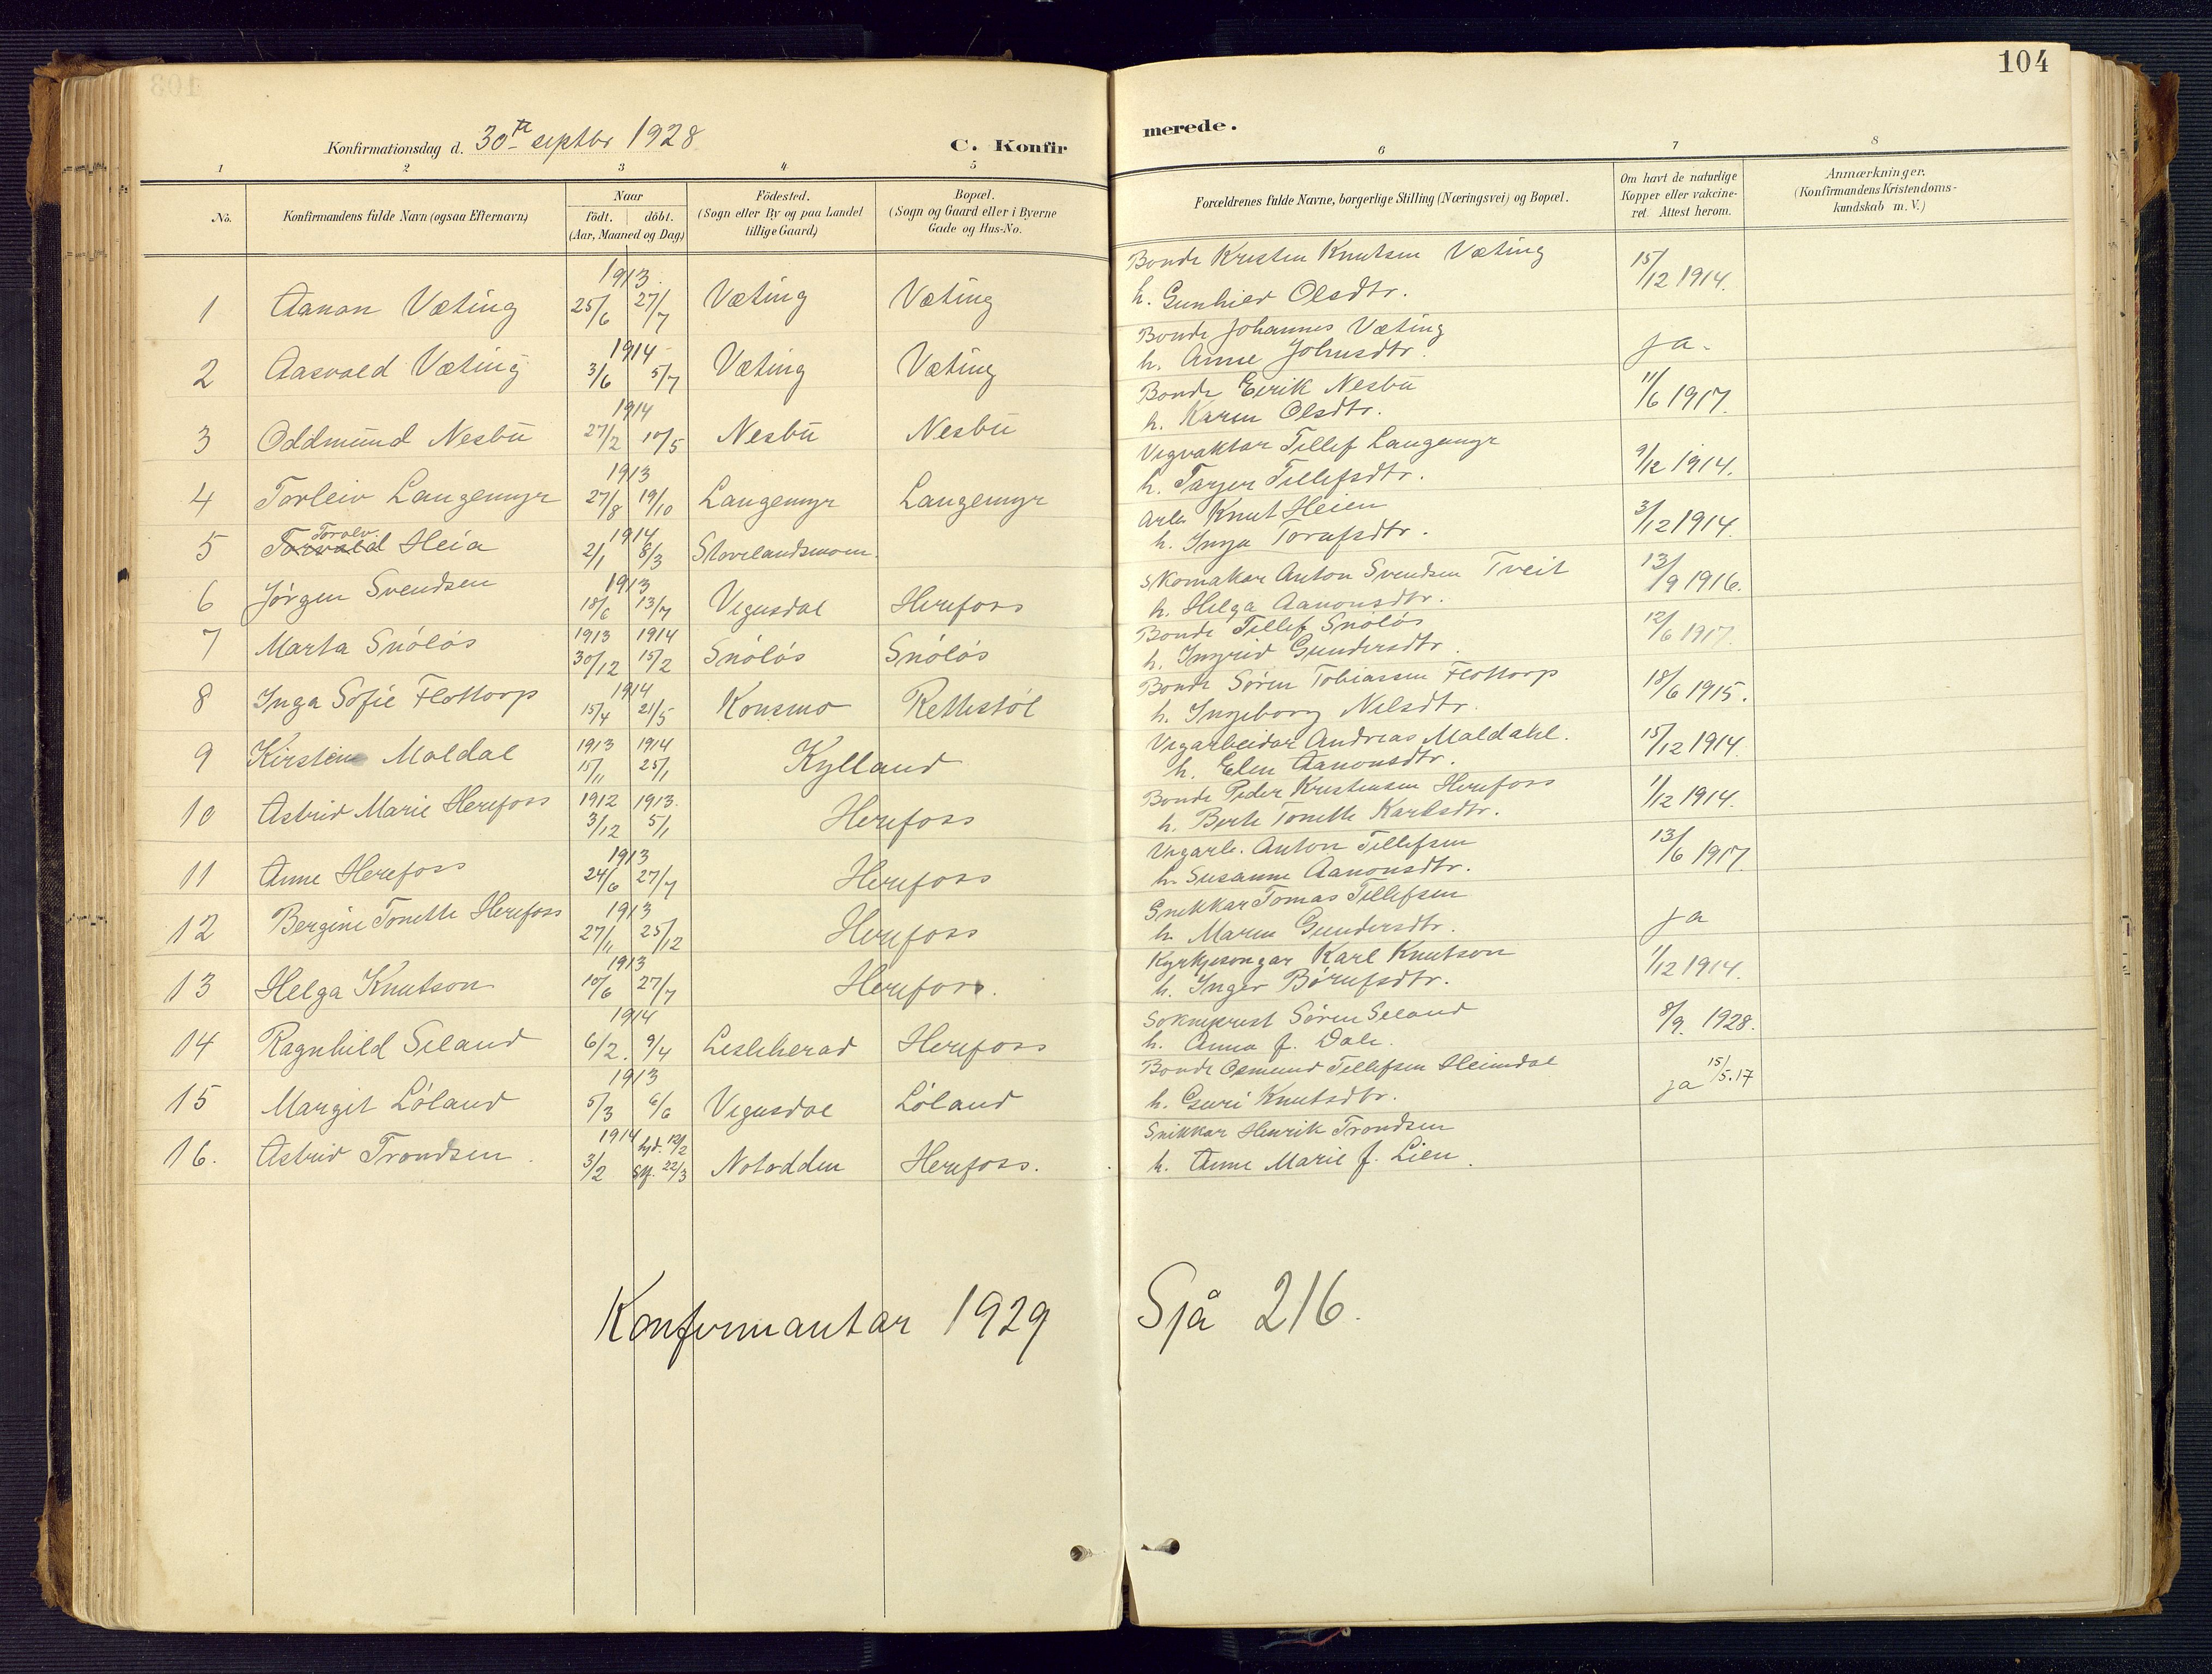 104
Konfirmationsdag d. 30te septbr 1928
C. Konfir
merede.
1 2 3 4 5 6 7 8
No.
Konfirmandens fulde Navn (ogsaa Efternavn)
Naar
födt. döbt.
(Aar, Maaned og Dag)
Födested.
(Sogn eller By og paa Landet
tillige Gaard)
Bopæl.
(Sogn og Gaard eller i Byerne
Gade og Hus-No.
Forældrenes fulde Navne, borgerlige Stilling (Næringsvei) og Bopæl.
Om havt de naturlige
Kopper eller vakcine-
ret. Attest herom.
Anmærkninger.
(Konfirmandens Kristendoms-
kundskab m. V.)
1913
1 Aanon Væting 25/6 27/7 Væting Væting
Bonde Kristen Knutsen Væting
h. Gunhild Olsdtr.
15/12 1914.
1914
2 Aasvald Væting 3/6 5/7 Væting Væting
Bonde Johannes Væting
h. Anne Johnsdtr.
ja.
1914
3 Oddmund Nesbu 27/2 10/5 Nesbu Nesbu
Bonde Eirik Nesbu
h. Karen Olsdtr.
11/6 1917.
1913
4 Torleiv Langemyr 27/8 19/10 Langemyr Langemyr
Vegvaktar Tellef Langemyr
h. Tarjer Tellefsdtr.
9/12 1914.
Torolv. 1914
5 Torvald Heia 2/1 8/3 Stovelandsmoen.
Arb. Knut Heien
h. Inga Torafsdtr.
3/12 1914.
1913
6 Jörgen Svendsen 18/6 13/7 Vegusdal Herefoss
Skomakar Anton Svendsen Tveit
h. Helga Aanonsdtr.
13/9 1916.
1913 1914
7 Marta Snölös 30/12 15/2 Snölös Snölös
Bonde Tellef Snölös
h. Ingrid Gundersdtr.
12/6 1917.
1914
8 Inga Sofie Flottorp 15/4 21/5 Konsmo Rettestöl
Bonde Sören Tobiassen Flottorp
h. Ingeborg Nilsdtr.
18/6 1915.
1913 1914
9 Kirsten Moldal 15/11 25/1 Kylland
Vegarbeidar Andreas Maldahl.
h. Elen Aanonsdtr.
15/12 1914.
1912 1913.
10 Astrid Marie Herefoss 3/12 5/1 Herefoss
Bonde Peder Kristensen Herefoss
h. Berte Tonette Karlsdtr.
1/12 1914.
1913
11 Anne Herefoss 24/6 27/7 Herefoss
Vegarb. Anton Tellefsen
h. Susanne Aanonsdtr.
13/6 1917.
1913
12 Bergine Tonette Herefoss 27/11 25/12 Herefoss
Snekkar Tomas Tellefsen
h. Maren Gundersdtr.
ja
1913
13 Helga Knutson 10/6 27/7 Herefoss.
Kyrkjesongar Karl Knutson
h. Inger Börufsdtr.
1/12 1914.
1914
14 Ragnhild Seland 6/2. 9/4 Lesleherad Herefoss
Sokneprest Sören Seland
h. Anna f. Dale.
8/9. 1928.
1913
15 Margit Löland 5/3 6/6 Vegusdal Löland
Bonde Osmund Tellefsen Heimdal
h. Guri Knutsdtr.
ja 15/5.17
1914 hjd. 12/2
16. Astrid Trondsen. 3/2 Stf. 22/3 Notodden Herefoss.
Snikkar Henrik Trondsen
h. Anne Marie f. Lien.
Konfirmantar 1929 Sjå 216.